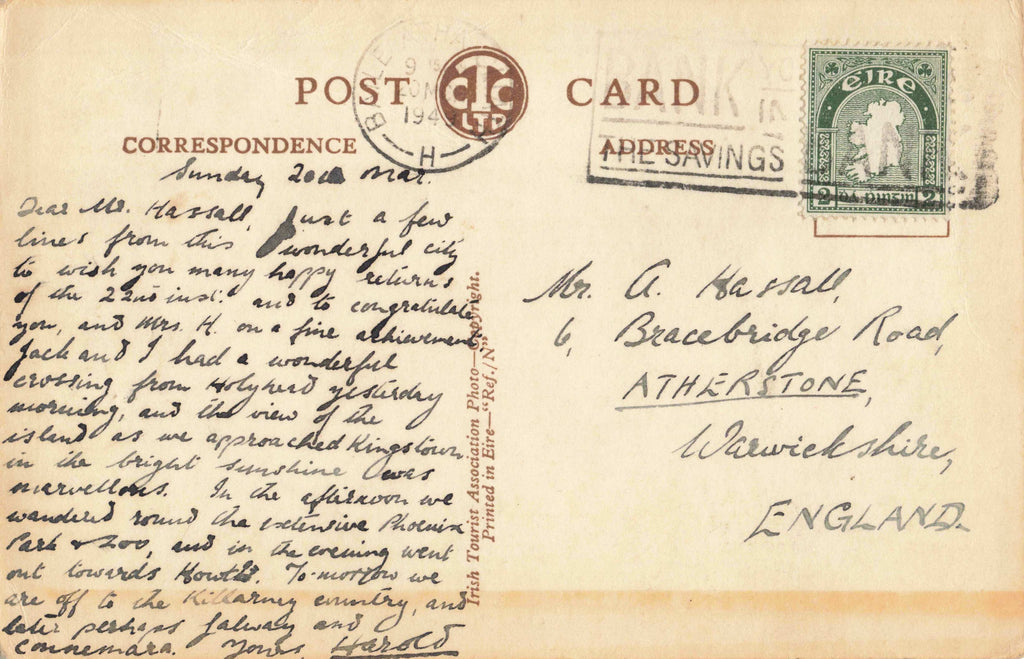 POST CARD
CTCC
LTD
CORRESPONDENCE
ADDRESS
THE SAVINGS
EIRE
2 2
Sunday 20th Mar.
Dear Mr. Hassall, Just a few
lines from this wonderful city
to wish you many happy returns
of the 22nd inst. and to congratulate
you, and Mrs. H. on a fine achievement
Jack and I had a wonderful
crossing from Holyhead yesterday
morning, and the view of the
island as we approached Kingstown,
in the bright sunshine was
marvellous. In the afternoon we
wandered round the extensive Phoenix
Park & Zoo, and in the evening went
out towards Howth. To-morrow we
are off to the Killarney country, and
later perhaps Galway and
Connemara. Yours, Harold
Irish Tourist Association Photo—Copyright.
Printed in Eire—"Ref./N"
Mr. A. Hassall,
6, Bracebridge Road,
ATHERSTONE,
Warwickshire,
ENGLAND.